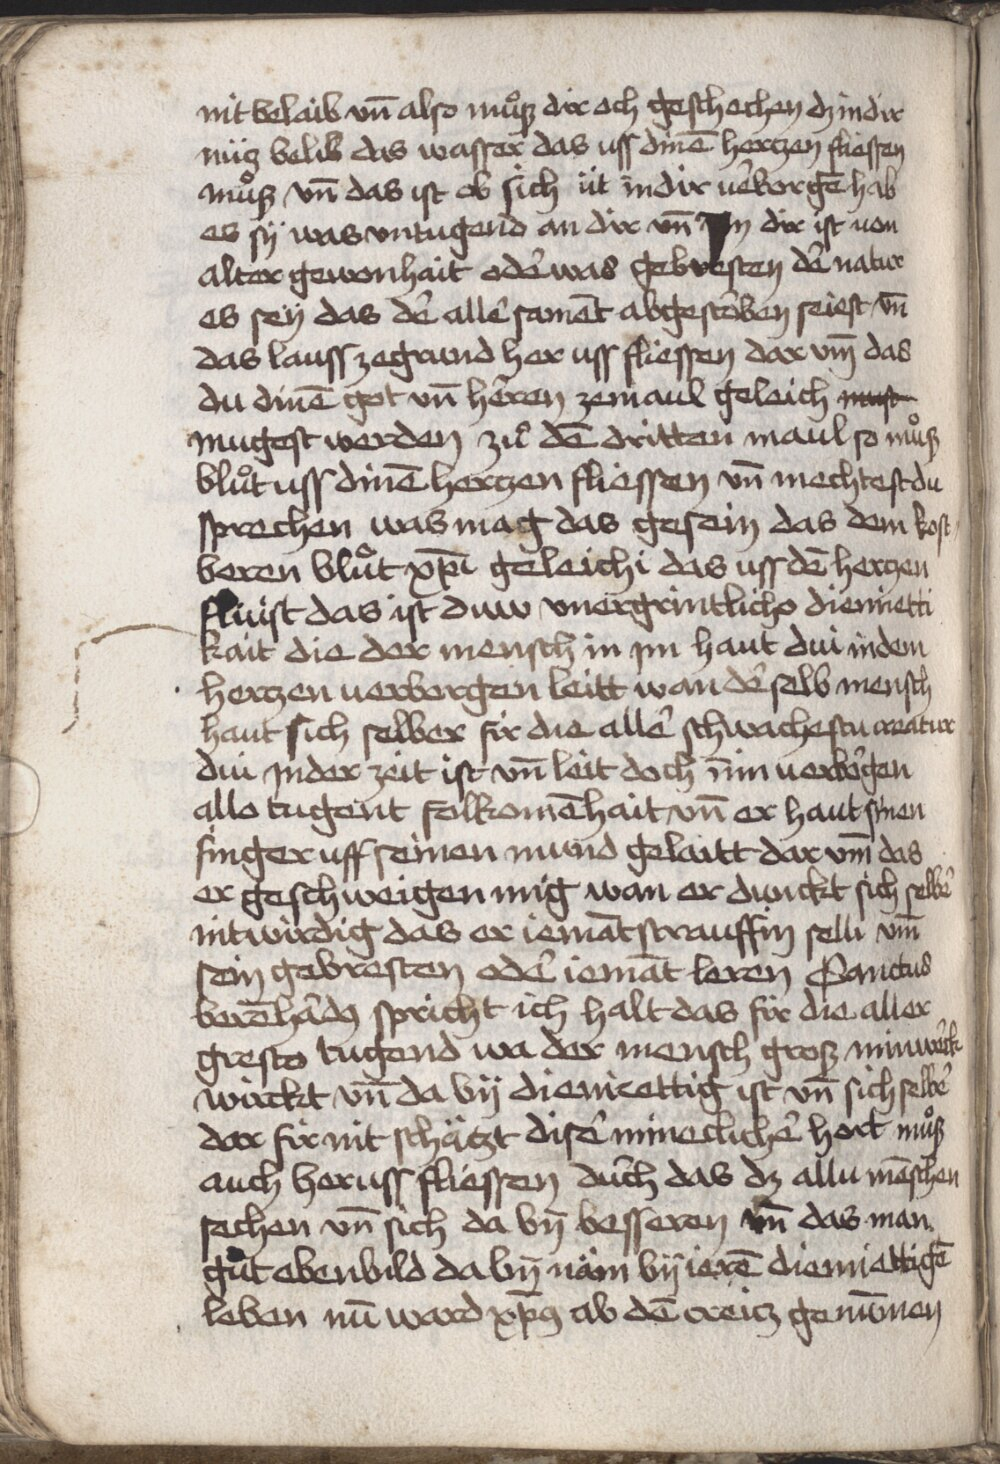 nit belaib vn̄ also muͦß dir och geschechen dz in dir
nüz belib das wasser das uss dinē hertzen fliessen
muͦß vn̄ das ist ob sich üt in dir uerborgē hab
es sÿ was vntugend an dir vn̄ in dir ist uon
alter gewonhait odē was gebresten dē natur
es seÿ das dē allē samēt abgestorben seiest vn̄
das lauss ze grund her uss fliessen dar vm̄ das
du dinē got vn̄ hēren ze maul geleich must
mugest werden zuͦ dē dritten maul so muͦß
bluͦt uss dinē hertzen fliessen vn̄ mechtest du
sprechen was mag das gesein das dem kost
beren bluͦt xp̄i geleichi das uss dē hertzen
fluist das ist duw vnergrintlicho diemietti
kait die der mensch in im haut dui in dem
hertzen uerborgen leitt wan dē selb mensch
haut sich selber fir die allē schwachestu creatur
dui in der zeit ist vn̄ leit doch in im uerborgen
allo tugent folkomēhait vn̄ er haut sinen
finger uff seinen mund gelaitt dar vm̄ das
er geschweigen mig wan er dunckt sich selbē
nit wirdig das er iemāt strauffin selli vm̄
sein gebresten odē iemāt leren Sanctus
berēhādꝰ spricht ich halt das fir die aller
gresto tugend wa der mensch groß minwerck
wirckt vn̄ da bÿ diemiettig ist vn̄ sich selbē
dar fir nit schätzt disē mineclichē hort muͦß
auch her uss fliessen durch das dz allu mēschen
sechen vn̄ sich da bÿ besseren vn̄ das man
guͦt ebenbild da bÿ näm bÿ ierē diemiettigē
leben nū ward xp̄ꝰ ab dē creitz genūmen